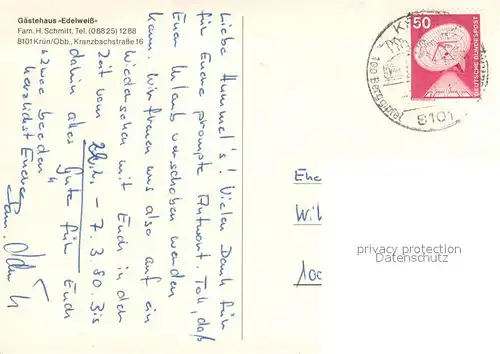 Gästehaus »Edelweiß«
Fam. H. Schmitt, Tel. (08825) 1288
8101 Krün/Obb., Kranzbachstraße 16
Liebe Hummel's! Vielen Dank für
für Euere prompte Antwort. Toll, daß
Euer Urlaub verschoben werden
kann. Wir freuen uns also auf ein
Wiedersehen mit Euch in der
Zeit vom 22.2. - 7.3.80. Bis
dahin alles Gute für Euch
zwee beeden"
herzlichst Euere
Fam.
50
DEUTSCHE BUNDESPOST
8101
Wil
100
privacy protection
Datenschutz